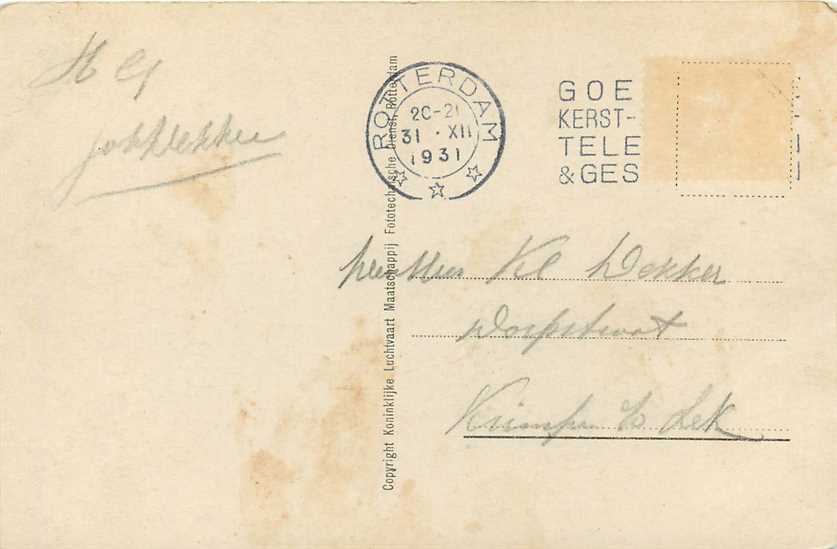 H G
ROTTERDAM
20-21
31 · XII
1931
GOE
KERST-
TELE
& GES
Kl Dekker
Dorpstraat
Krimpen a/d Lek
Copyright Koninklijke Luchtvaart Maatschappij Fototechnische Dienst, Rotterdam